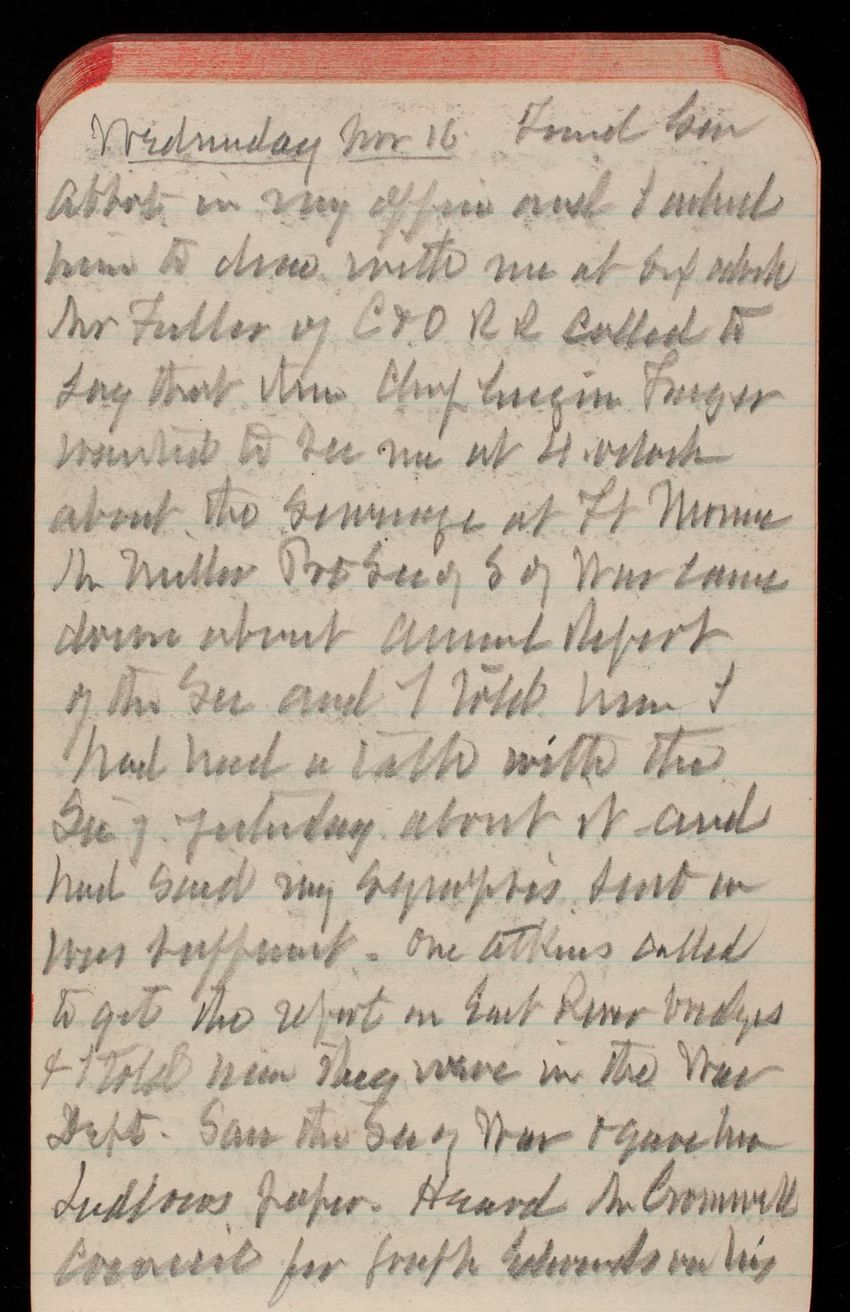 Wednesday Nov 16 Found Gen
Abbot in my office and I asked
him to dine with me at six oclock
Mr Fuller of C & O R R called to
say that their Chief Engin
wanted to see me at 4 oclock
about the Sewerage at Ft Monroe
Mr Miller Pro Sec of S of War came
down about Annual Report
of the Sec and I told him I
had had a talk with the
Sec'y yesterday about it and
had said my synopsis sent in
was sufficient. One Atkins called
to get the report on East River bridges
& I told him they were in the War
Dept. Saw the Sec of War & gave him
Ludlows paper. Heard Mr Cromwell
Council for Joseph Edwards on his